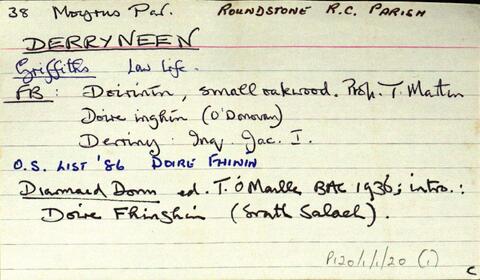 38 Moyrus Par. ROUNDSTONE R.C. PARISH
DERRYNEEN
Griffiths Law Life.
FB: Doirínín, small oakwood. Prop. T. Martin
Doire inghin (O'Donovan)
Derriny: Inq. Jac. I.
O.S. LIST '86 DOIRE FHINÍN
Diarmaid Donn ed. T. Ó Máille BAC 1936; intro.:
Doire Fhinghin (Srath Salach).
P120/1/1/20 (1)
C